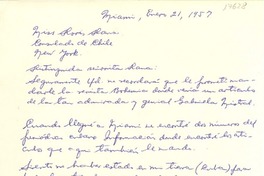 Miami, Enero 21, 1957
Miss Doris Dana
Consulado de Chile
New York.
Distinguida señorita Dana:
Seguramente Ud. no recordará que le prometí man-
darle la revista Bohemia donde venía un artículo de
la tan admirada y genial Gabriela Mistral.
Cuando llegué a Miami me encontré dos números del
periódico cubano Información donde encontré los artí-
culos que también le mando.
Siento no haber estado en mi tierra (Cuba) para